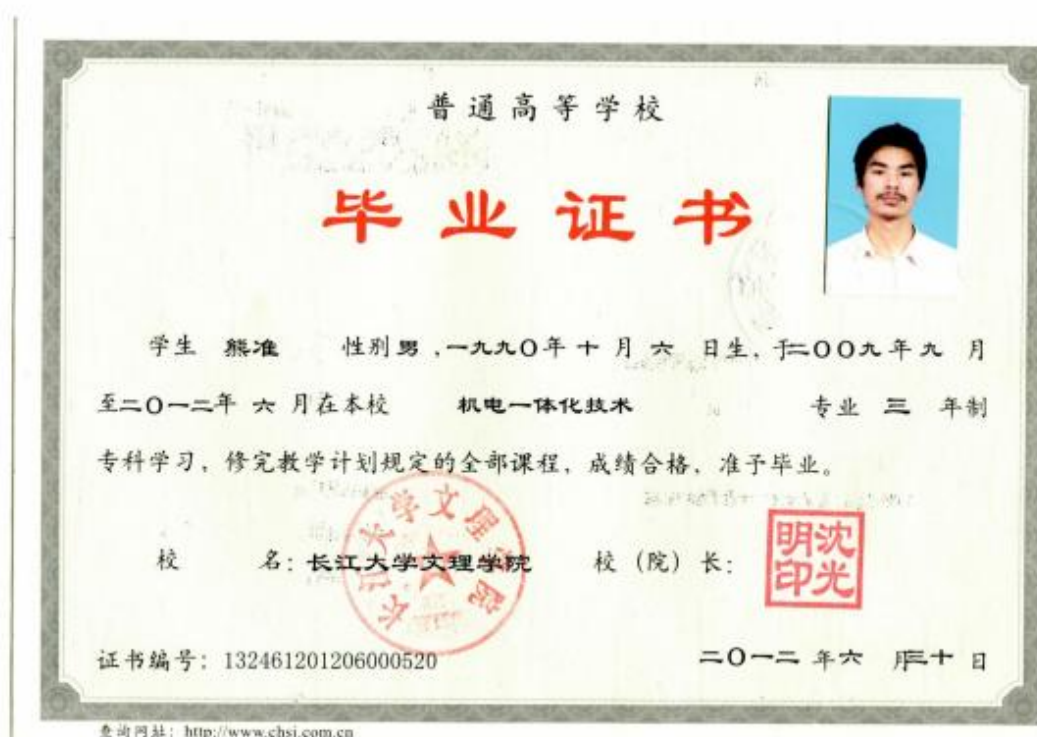 普通高等学校
毕业证书
学生 熊准 性别男，一九九〇年十月六日生，于二〇〇九年九月
至二〇一二年六月在本校 机电一体化技术 专业 三 年制
专科学习，修完教学计划规定的全部课程，成绩合格，准予毕业。
校 名：长江大学文理学院 校（院）长：
长江大学文理学院
沈光明印
证书编号：132461201206000520 二〇一二年六月三十日
查询网址：http://www.chsi.com.cn